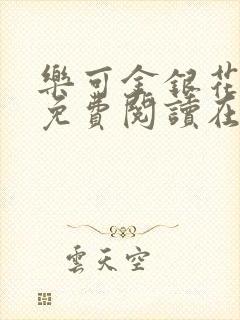 樂可金銀花
免費閱讀在
雲天空